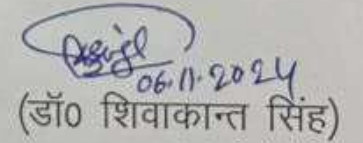 06.11.2024
(डॉ0 शिवाकान्त सिंह)